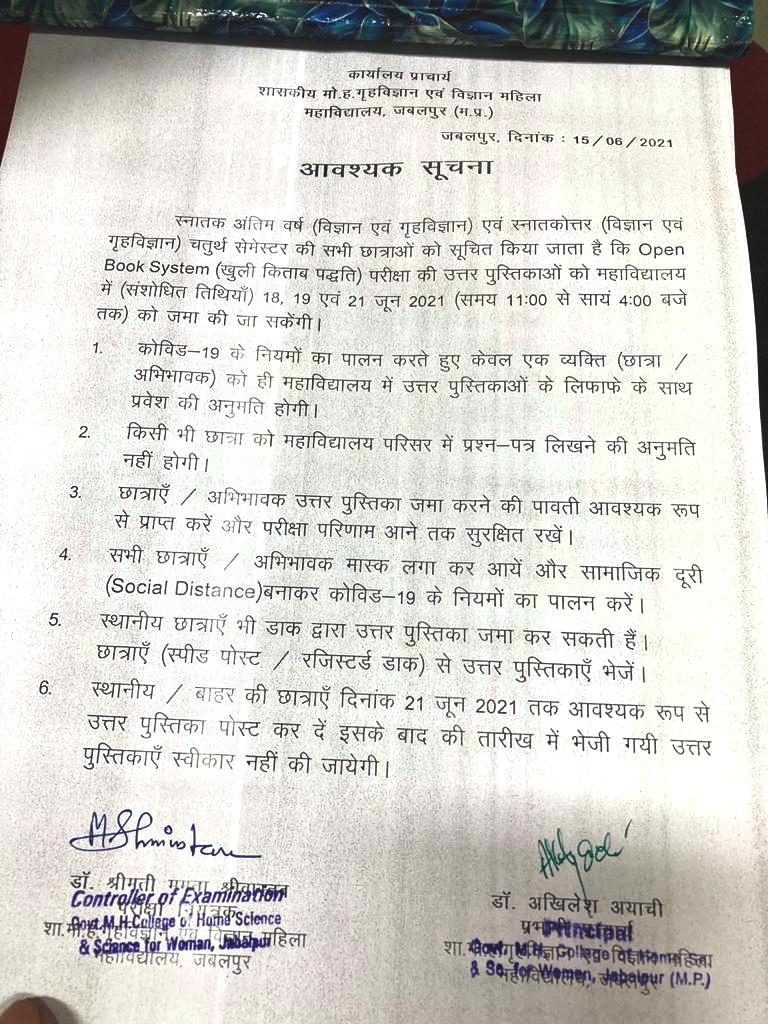 कार्यालय प्राचार्य
शासकीय मो.ह.गृहविज्ञान एवं विज्ञान महिला
महाविद्यालय, जबलपुर (म.प्र.)
जबलपुर, दिनांक : 15/06/2021
आवश्यक सूचना
स्नातक अंतिम वर्ष (विज्ञान एवं गृहविज्ञान) एवं स्नातकोत्तर (विज्ञान एवं
गृहविज्ञान) चतुर्थ सेमेस्टर की सभी छात्राओं को सूचित किया जाता है कि Open
Book System (खुली किताब पद्धति) परीक्षा की उत्तर पुस्तिकाओं को महाविद्यालय
में (संशोधित तिथियाँ) 18, 19 एवं 21 जून 2021 (समय 11:00 से सायं 4:00 बजे
तक) को जमा की जा सकेंगी।
1. कोविड–19 के नियमों का पालन करते हुए केवल एक व्यक्ति (छात्रा /
अभिभावक) को ही महाविद्यालय में उत्तर पुस्तिकाओं के लिफाफे के साथ
प्रवेश की अनुमति होगी।
2. किसी भी छात्रा को महाविद्यालय परिसर में प्रश्न–पत्र लिखने की अनुमति
नहीं होगी।
3. छात्राएँ / अभिभावक उत्तर पुस्तिका जमा करने की पावती आवश्यक रूप
से प्राप्त करें और परीक्षा परिणाम आने तक सुरक्षित रखें।
4. सभी छात्राएँ / अभिभावक मास्क लगा कर आयें और सामाजिक दूरी
(Social Distance)बनाकर कोविड–19 के नियमों का पालन करें।
5. स्थानीय छात्राएँ भी डाक द्वारा उत्तर पुस्तिका जमा कर सकती हैं।
छात्राएँ (स्पीड पोस्ट / रजिस्टर्ड डाक) से उत्तर पुस्तिकाएँ भेजें।
6. स्थानीय / बाहर की छात्राएँ दिनांक 21 जून 2021 तक आवश्यक रूप से
उत्तर पुस्तिका पोस्ट कर दें इसके बाद की तारीख में भेजी गयी उत्तर
पुस्तिकाएँ स्वीकार नहीं की जायेगी।
डॉ. श्रीमती
Controller of Examination
Govt.M.H.College of Home Science
शा.मो.ह.गृहविज्ञान एवं विज्ञान महिला
& Science for Woman, Jabalpur
महाविद्यालय, जबलपुर
डॉ. अखिलेश अयाची
Principal
शा.मो.ह.गृहविज्ञान एवं विज्ञान महिला
Govt. M.H. College of Home Sc.
& Sc. for Women, Jabalpur (M.P.)
महाविद्यालय, जबलपुर